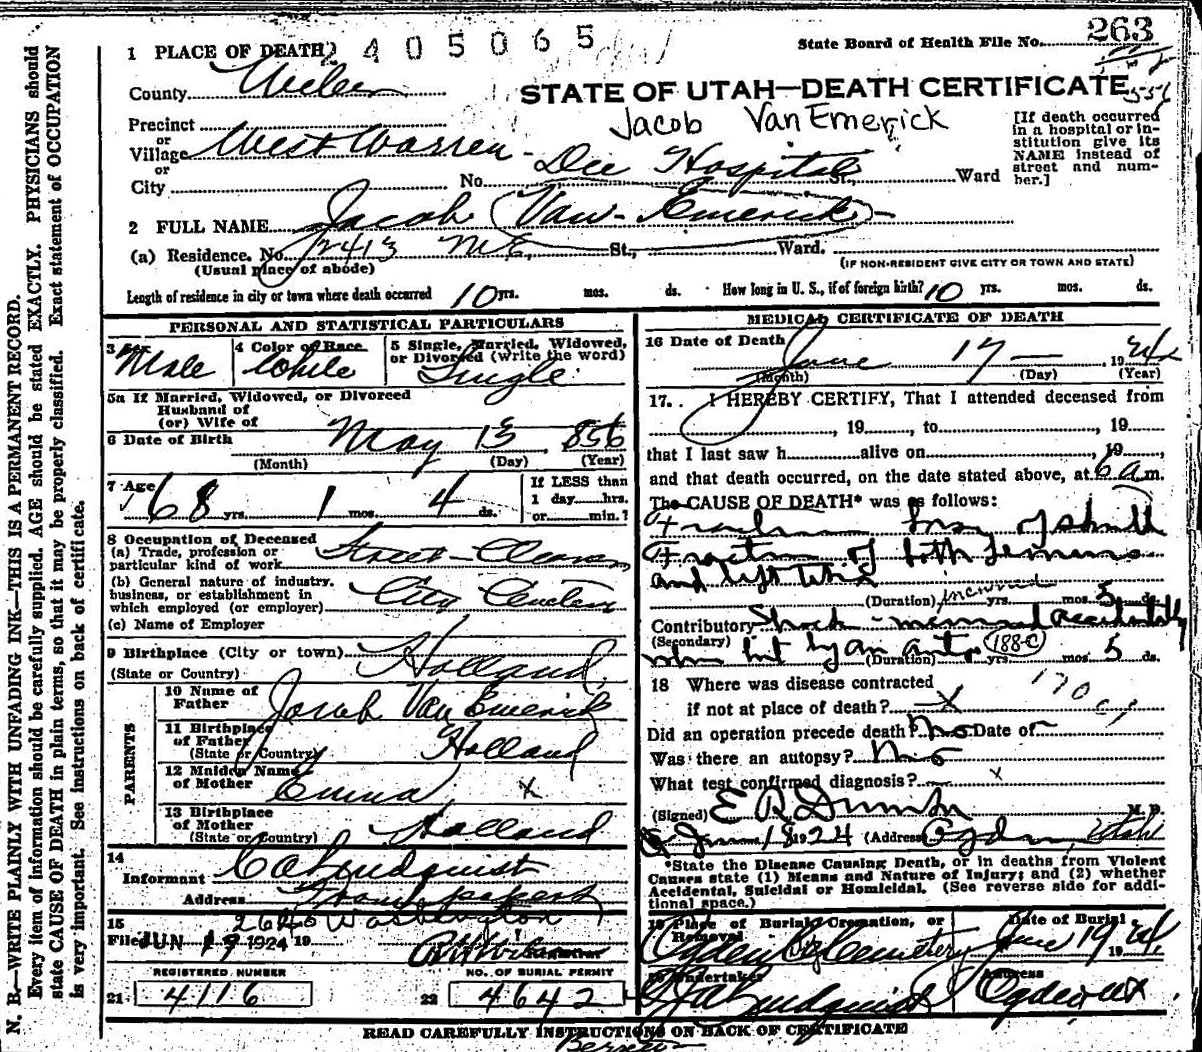 263
State Board of Health File No.
1 PLACE OF DEATH 2405065
County Weber
STATE OF UTAH—DEATH CERTIFICATE
556
Jacob Van Emerick
Precinct
or
Village West Warren - Dee Hospital
or
City No. St., Ward
[If death occurred
in a hospital or in-
stitution give its
NAME instead of
street and num-
ber.]
2 FULL NAME Jacob Van-Emerick
(a) Residence. No. 2413 M.E. St., Ward.
(Usual place of abode) (IF NON-RESIDENT GIVE CITY OR TOWN AND STATE)
Length of residence in city or town where death occurred 10 yrs. mos. ds. How long in U. S., if of foreign birth? 10 yrs. mos. ds.
PERSONAL AND STATISTICAL PARTICULARS
3 Sex Male
4 Color or Race White
5 Single, Married, Widowed,
or Divorced (write the word)
Single
5a If Married, Widowed, or Divorced
Husband of
(or) Wife of
6 Date of Birth May 13, 856
(Month) (Day) (Year)
7 Age 68 yrs. 1 mos. 4 ds.
If LESS than
1 day hrs.
or min.?
8 Occupation of Deceased
(a) Trade, profession or
particular kind of work Street-Cleaner
(b) General nature of industry,
business, or establishment in
which employed (or employer) City
(c) Name of Employer
9 Birthplace (City or town)
(State or Country) Holland
PARENTS
10 Name of
Father Jacob Van Emerick
11 Birthplace
of Father
(State or Country) Holland
12 Maiden Name
of Mother Emma x
13 Birthplace
of Mother
(State or Country) Holland
14
Informant C A Lindquist
Address
2640 Washington
15
Filed JUN 19 1924 19
Registrar
REGISTERED NUMBER
21 4116
NO. OF BURIAL PERMIT
22 4642
MEDICAL CERTIFICATE OF DEATH
16 Date of Death June 17 — 1924
(Month) (Day) (Year)
17. I HEREBY CERTIFY, That I attended deceased from
, 19 , to , 19
that I last saw h alive on , 19 ,
and that death occurred, on the date stated above, at 6 a m.
The CAUSE OF DEATH* was as follows:
of skull
Fracture of both femurs
and left
(Duration) yrs. mos. 5 ds.
Contributory Shock - accidentally
(Secondary) when hit by an auto 188-C
(Duration) yrs. mos. 5 ds.
18 Where was disease contracted
if not at place of death? x
170 c
Did an operation precede death? no Date of
Was there an autopsy? no
What test confirmed diagnosis? x
(Signed) E R Dumke M. D.
June 18 1924 (Address Ogden, Utah
*State the Disease Causing Death, or in deaths from Violent
Causes state (1) Means and Nature of Injury; and (2) whether
Accidental, Suicidal or Homicidal. (See reverse side for addi-
tional space.)
19 Place of Burial, Cremation, or
Removal
Ogden City Cemetery
Date of Burial
June 19 1924
20 Undertaker
C A Lindquist
Address
Ogden Ut
READ CAREFULLY INSTRUCTIONS ON BACK OF CERTIFICATE
N. B.—WRITE PLAINLY WITH UNFADING INK—THIS IS A PERMANENT RECORD.
Every item of information should be carefully supplied. AGE should be stated EXACTLY. PHYSICIANS should
state CAUSE OF DEATH in plain terms, so that it may be properly classified. Exact statement of OCCUPATION
is very important. See instructions on back of certificate.